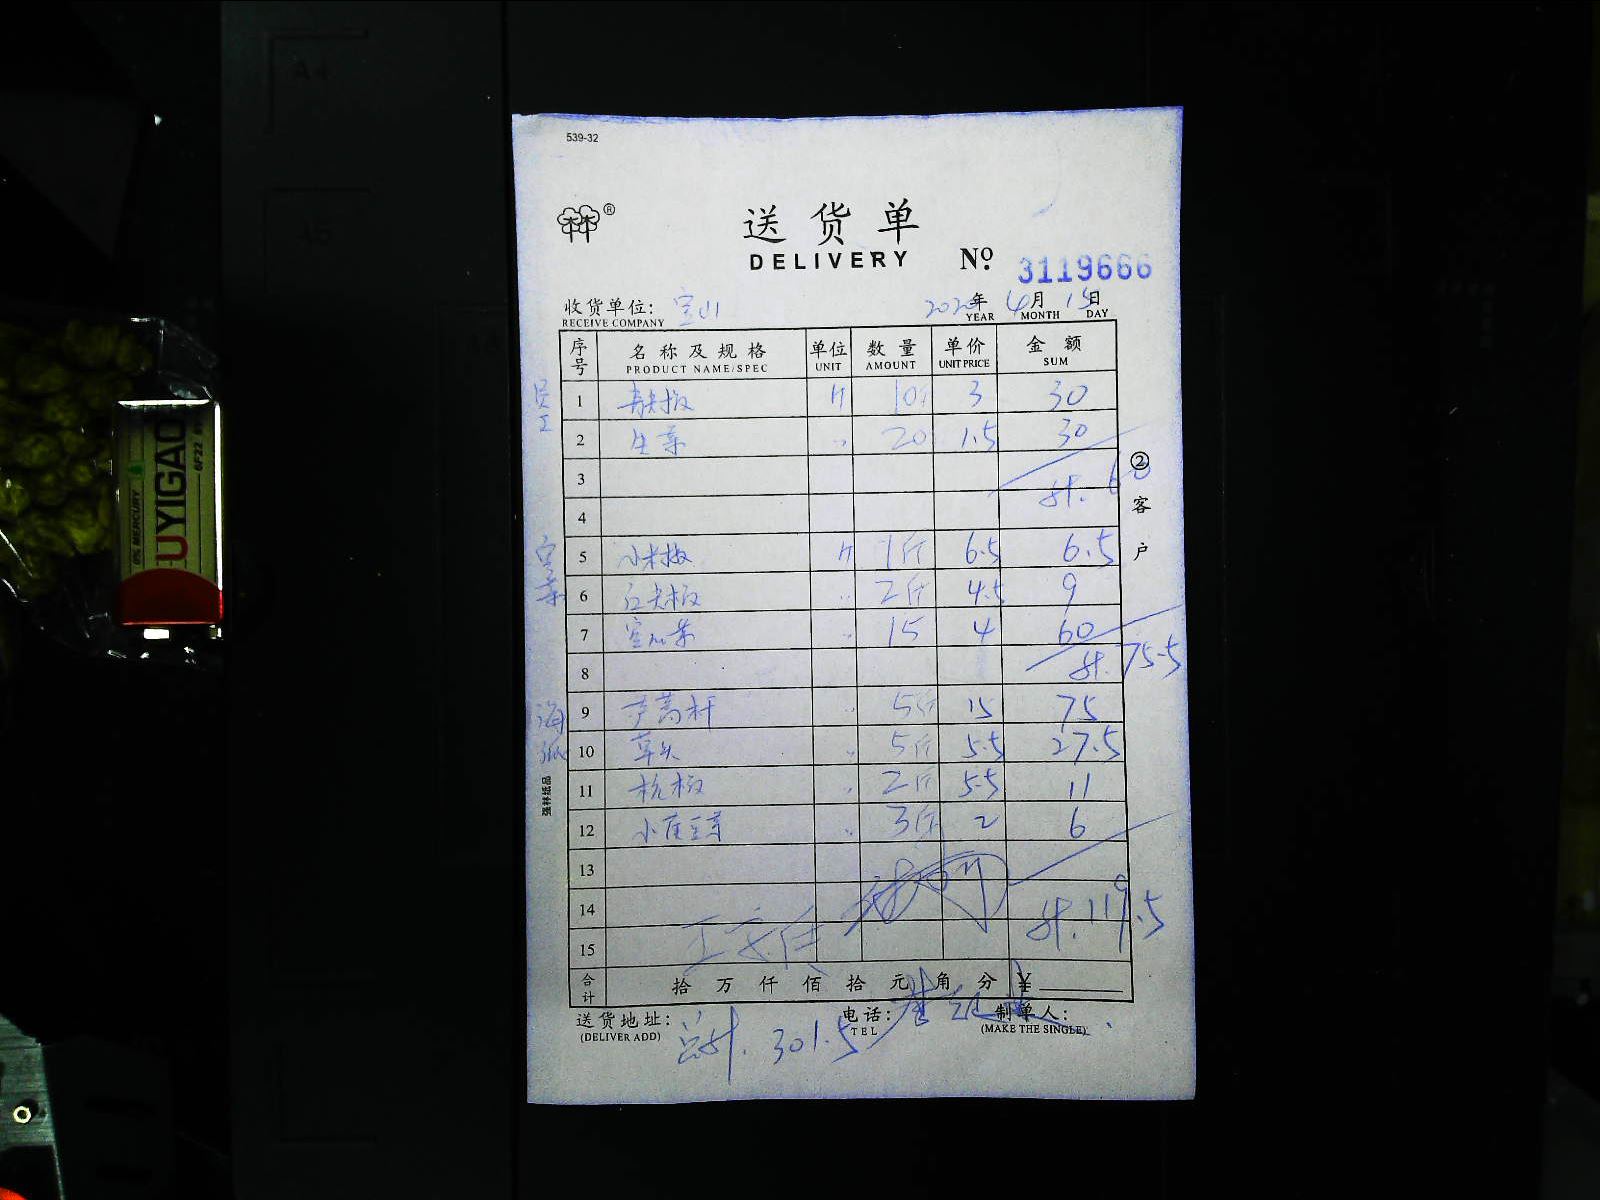 539-32
®
送货单
DELIVERY
Nº. 3119666
收货单位: 宝山
RECEIVE COMPANY
2020年 4月 15日
YEAR MONTH DAY
序号 名称及规格 单位 数量 单价 金额
PRODUCT NAME/SPEC UNIT AMOUNT UNIT PRICE SUM
员工
1 青尖椒 斤 10斤 3 30
2 生菜 〃 20 1.5 30
3 计. 60
4
5 小米椒 斤 1斤 6.5 6.5
6 红尖椒 〃 2斤 4.5 9
7 空心菜 〃 15 4 60
8 计. 75.5
9 芦蒿杆 〃 5斤 15 75
10 草头 〃 5斤 5.5 27.5
11 杭椒 〃 2斤 5.5 11
12 小黄豆芽 〃 3斤 2 6
13
14 计. 119.5
15
合计 拾 万 仟 佰 拾 元 角 分 ¥
送货地址:
(DELIVER ADD)
电话:
TEL
制单人:
(MAKE THE SINGLE)
总计. 301.5
②客户
强林纸品
0% MERCURY
UYIGAO
6F22
A4
A5